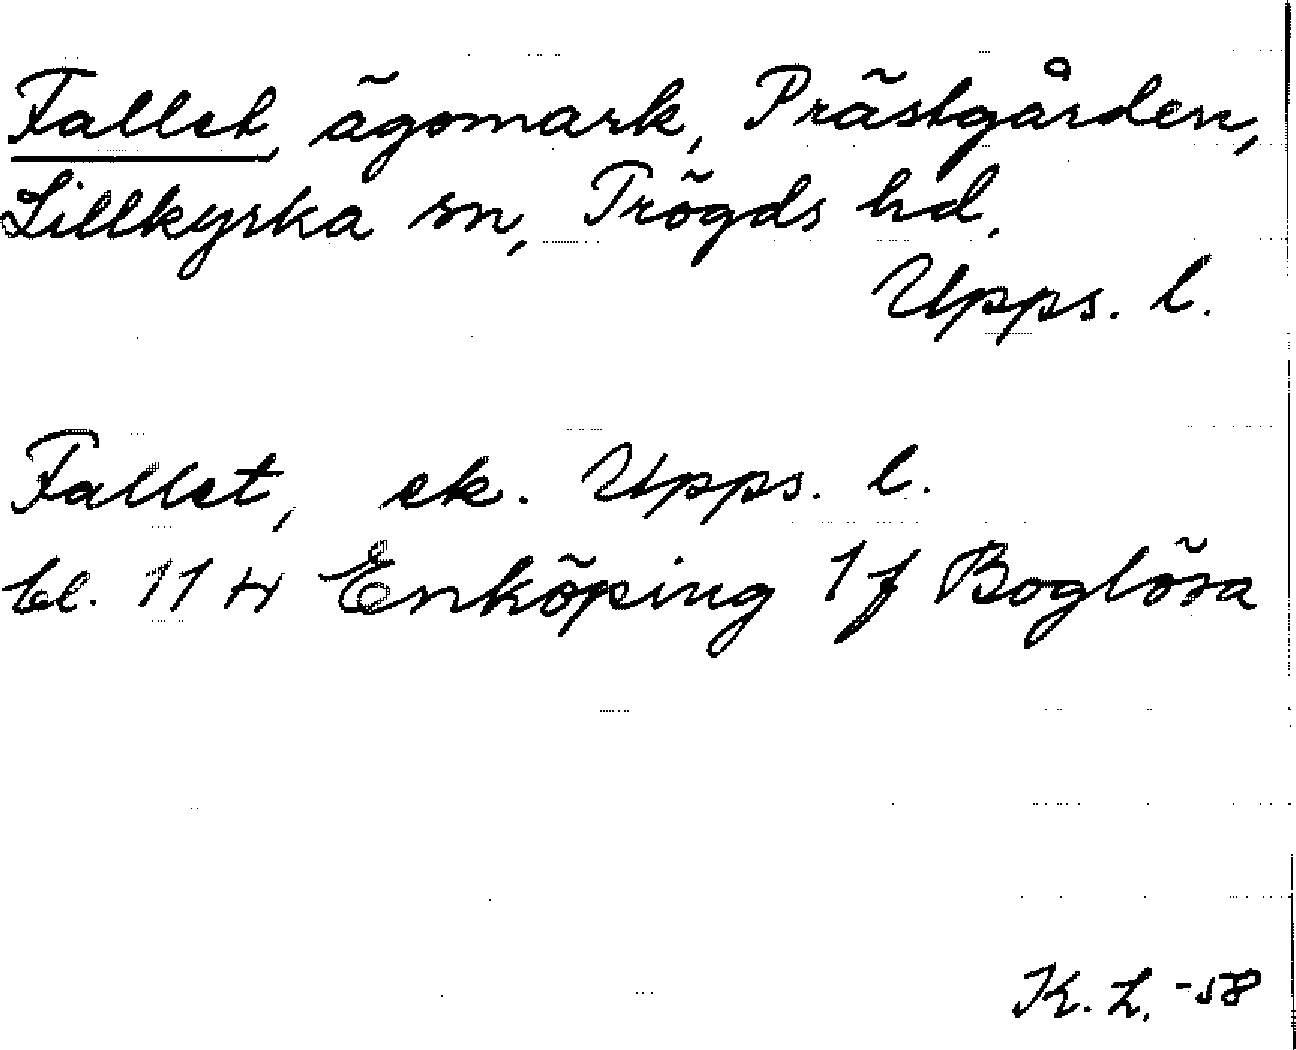 Fallet, ägomark, Prästgården,
Lillkyrka sn, Trögds hd.
Upps. l.
Fallet, ek. Upps. l.
bl. 11 H Enköping 1f Boglösa
K. L. -58